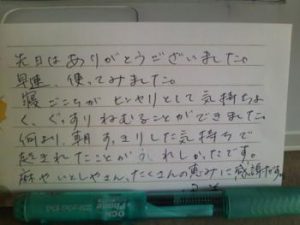 先日はありがとうございました。
早速、使ってみました。
寝ごこちがヒンヤリとして気持ちよ
く、ぐっすりねむることができました。
何より、朝すっきりした気持ちで
起きれたことがうれしかったです。
麻やいとしやさん、たくさんの恵みに感謝です。